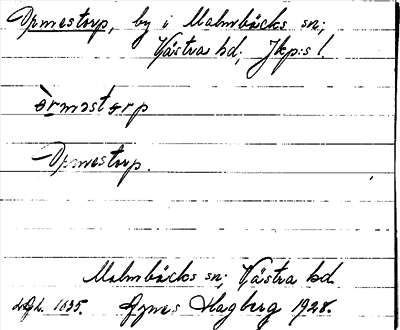 Ormestorp, by i Malmbäcks sn;
Västra hd, Jkp:s l.
òrməstərp
Ormestorp.
Malmbäcks sn; Västra hd.
1635. Agnes Hagberg 1928.